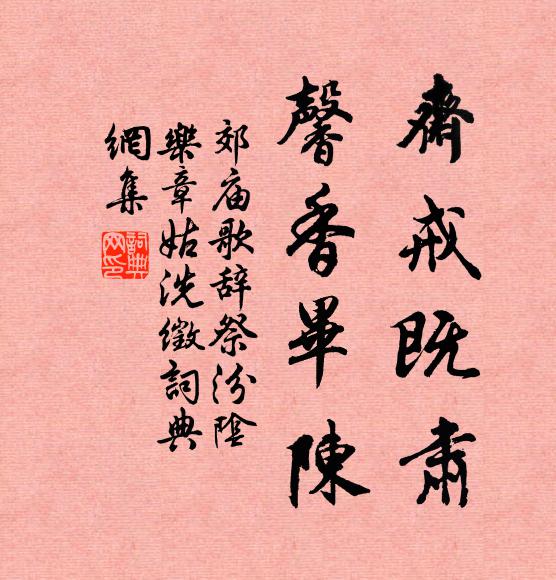 齋戒既肅
馨香畢陳
郊庙歌辞祭汾陰
樂章姑洗徵詞典
網集
詞典網印